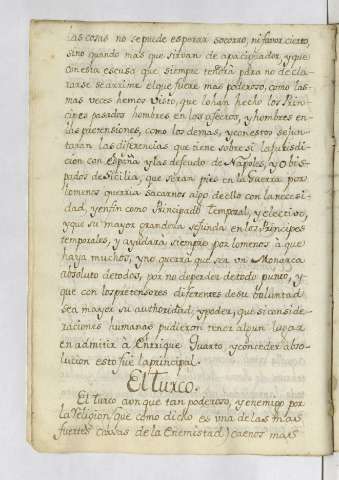 las cosas no se puede esperar socorro, ni favor cierto,
sino quando mas que sirvan de apaciguador, y que
con esta escusa que siempre tendra para no decla-
rarse se arrime el que fuere mas poderoso, como las
mas veces hemos visto, que lo han hecho los Prin-
cipes pasados hombres en los afectos, y hombres en
las pretensiones, como los demas, y con esto se jun-
taran las diferencias que tiene sobre si la jurisdi-
ción con España y las de feudo de Napoles, y obis-
pados de Sicilia, que seran pies en la Guerra por
lo menos querria sacarnos algo de ello con la necesi-
dad, y en fin como Principado temporal, y electivo,
y que su mayor grandeza se funda en los Principes
temporales, y ayudara siempre por lo menos à que
haya muchos, y no querra que sea un Monarca
absoluto de todos, por no depender de todo punto, y
que con los pretensores diferentes de su voluntad
sea mayor su authoridad, y poder, que si conside-
raciones humanas pudieron tener algun lugar
en admitir à Enrique Quarto y conceder abso-
lucion esto fue la principal.
El Turco.
El Turco aunque tan poderoso, y enemigo por
la Religion (que como dicho es una de las mas
fuertes causas de la Enemistad) caenos mas